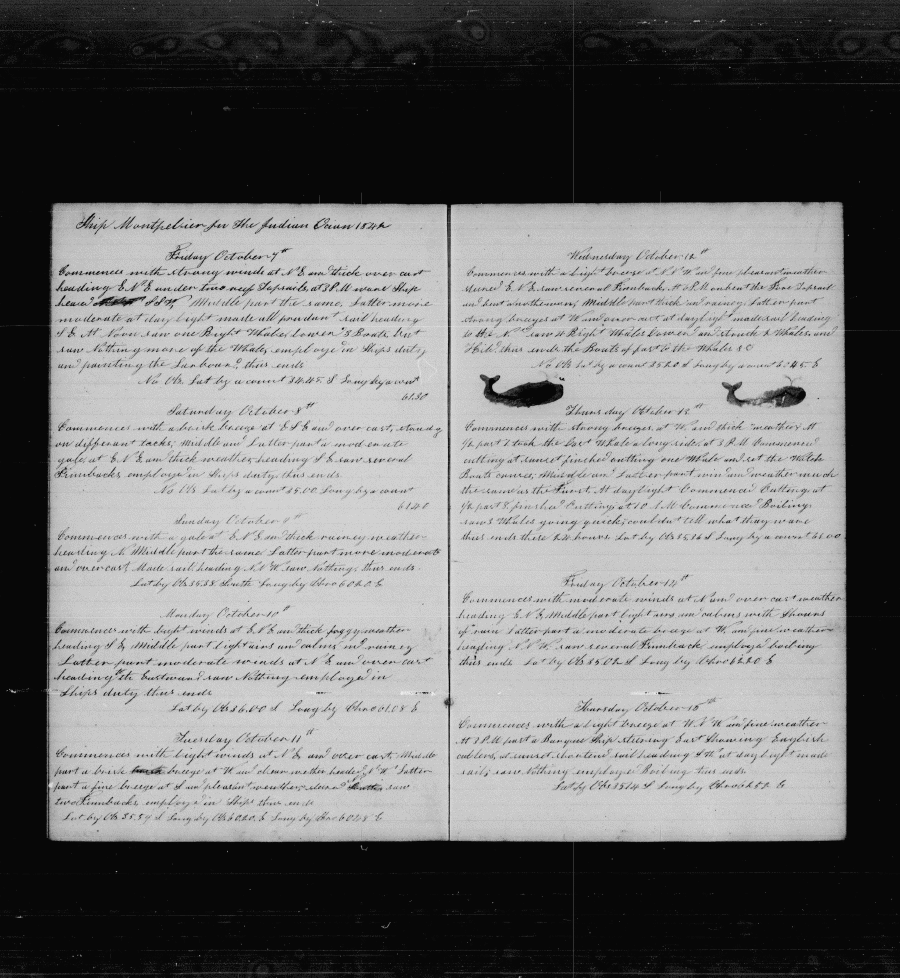 Ship Montpelier for The Indian Ocean 1842
Friday October 7th
Commences with strong winds at N E and thick over cast
heading E N E under two reef Topsails at 3 P.M ware Ship
head S S W, Middle part the same. Latter more
moderate at day light made all prudant sail heading
S E At Noon saw one Right Whale, Lowerd 3 Boats but
saw Nothing more of the Whale, employd in Ships duty
and painting the Larboard thus ends
No Obs Lat by acount 34.45 S Long by acount
61.30
Saturday October 8th
Commences with a brisk breeze at E S E and over cast, standg
on different tacks, Middle and Latter part a moderate
gale at E N E and thick weather, heading S E saw several
Finnbacks employd in Ships duty, thus ends.
No Obs Lat by acount 35.00 Long by acount
61.40
Sunday October 9th
Commences with a gale at E N E and thick rainey weather
hearding N Middle part the same Latter part more moderate
and over cast. Made sail heading N N W. saw Nothing, thus ends.
Lat by Obs 35.38 South Long by Chro 60.20 E
Monday October 10th
Commences with light winds at E N E and thick foggy weather
heading S E Middle part light airs and calms and rainey
Latter part moderate winds at N E and over cast
heading th Eastward saw Nothing employd in
Ships duty thus ends
Lat by Obs 36.00 S Long by Chro 61.08 E
Tuesday October 11th
Commences with light winds at N E and over cast, Middle
part a brisk breeze at W and clear wether headed N W Latter
part a fine breeze at S and pleasant weather steerd saw
two Finnbacks employd in Ship thus ends
Lat by Obs 35.34 S Long by Obs 60.20. E Long by Chro 60.28 E
Wednesday October 12th
Commences with a Light breeze at N N W and fine pleasant weather
steerd E N E saw several Finnback. At 6 P.M
Middle part thick and rainey Latter part
strong breezes at W and over cast at daylight made sail heading
to the N saw 4 Right Whales Lowerd and struck 2 Whales and
Kild thus ends the Boats of part to the Whales &C
No Obs Lat by acount 35.20 S Long by acount 63.45. E
Thursday October 13th
Commences with strong breezes, at W. and thick weather. At
½ part 2 took the Last Whale along side, at 3 P.M Commenced
cutting at sunset finshed cutting one Whale and set the Watch
Boats course, Middle and Latter part wind and weather much
the same as the First. At daylight Commenced Cutting, at
½ part 8 finshed Cutting, at 10 A.M Commenced Boiling.
saw 3 Whales going quick, couldnt tell what they ware
thus ends these 24 hours. Lat by Obs 35.26 S Long by acount 64.00
Friday October 14th
Commences with moderate winds at N and over cast weather
heading E N E Middle part light airs and calms with showrs
of rain Latter part a moderate breeze at W. and fine weather
heading N N W. saw several Finnback employd boiling
thus ends Lat by Obs 35.02 S Long by Chro 62.20 E
Thursday October 15th
Commences with a Light breeze at W. N W. and fine weather
At 3 P.M past a Barque Ship steering East Showing English
collers, at sunset shortend sail heading S th at daylight made
sail, saw Nothing employd Boiling thus ends
Lat by Obs 35.14 S Long by Chro 62.52 E